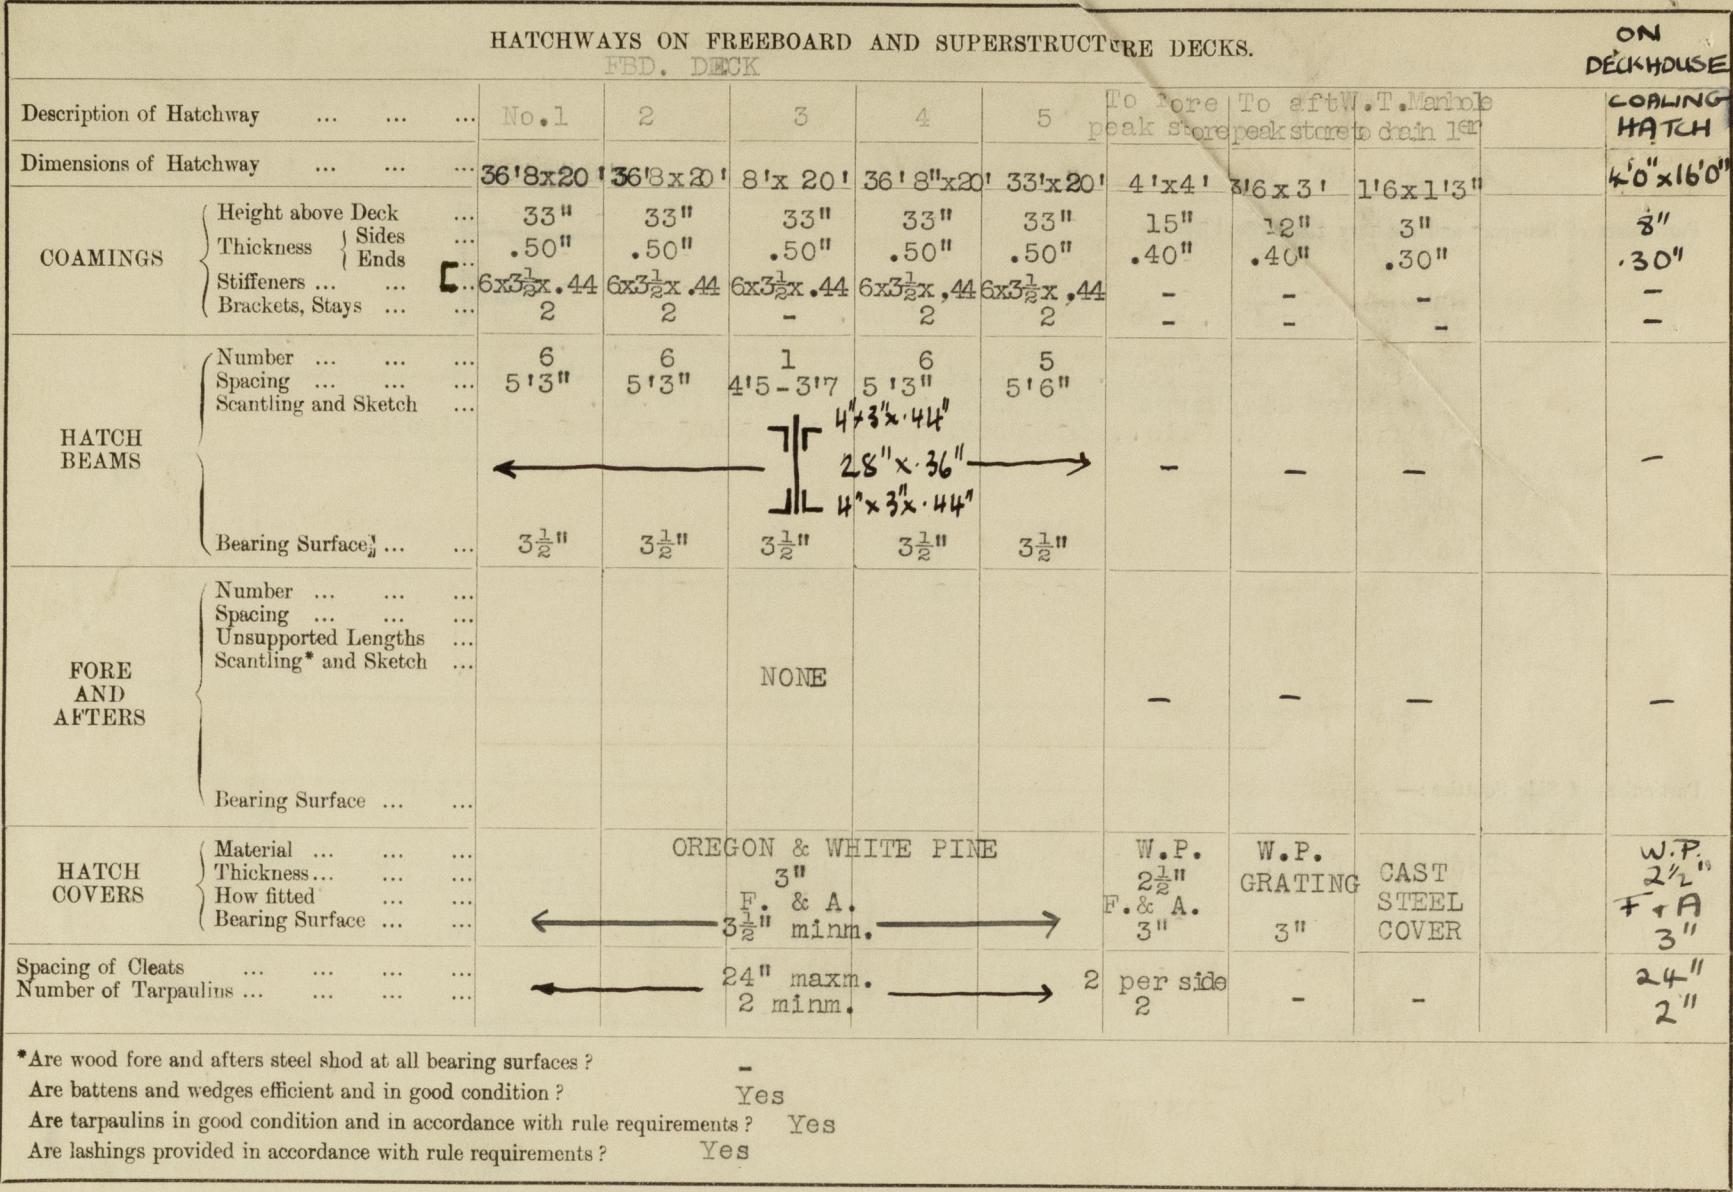 HATCHWAYS ON FREEBOARD AND SUPERSTRUCTURE DECKS.
FBD. DECK
ON DECKHOUSE
Description of Hatchway ... ... ... No.1 2 3 4 5 To fore peak store To aft peak store W.T. Manhole to drain 1er COALING HATCH
Dimensions of Hatchway ... ... ... 36'8x20' 36'8x20' 8'x 20' 36'8"x20' 33'x20' 4'x4' 3'6x3' 1'6x1'3" 4'0"x16'0"
COAMINGS
Height above Deck ... 33" 33" 33" 33" 33" 15" 12" 3" 8"
Thickness { Sides ... Ends ... .50" .50" .50" .50" .50" .40" .40" .30" .30"
Stiffeners ... ... [ ... 6x3½x.44 6x3½x.44 6x3½x.44 6x3½x,44 6x3½x,44 - - - -
Brackets, Stays ... ... 2 2 - 2 2 - - - -
HATCH BEAMS
Number ... ... ... 6 6 1 6 5
Spacing ... ... ... 5'3" 5'3" 4'5-3'7 5'3" 5'6"
Scantling and Sketch ...
4"x3"x.44"
28"x.36" - - - -
4"x3"x.44"
Bearing Surface ... ... 3½" 3½" 3½" 3½" 3½"
FORE AND AFTERS
Number ... ... ...
Spacing ... ... ...
Unsupported Lengths ...
Scantling* and Sketch ...
NONE - - - -
Bearing Surface ... ...
HATCH COVERS
Material ... ... ... OREGON & WHITE PINE W.P. W.P. GRATING CAST STEEL COVER W.P.
Thickness... ... ... 3" 2½" 2½"
How fitted ... ... F. & A. F.& A. F + A
Bearing Surface ... ... 3½" minm. 3" 3" 3"
Spacing of Cleats ... ... ... ... 24" maxm. 2 per side 24"
Number of Tarpaulins ... ... ... ... 2 minm. 2 - - 2"
*Are wood fore and afters steel shod at all bearing surfaces ? -
Are battens and wedges efficient and in good condition ? Yes
Are tarpaulins in good condition and in accordance with rule requirements ? Yes
Are lashings provided in accordance with rule requirements ? Yes